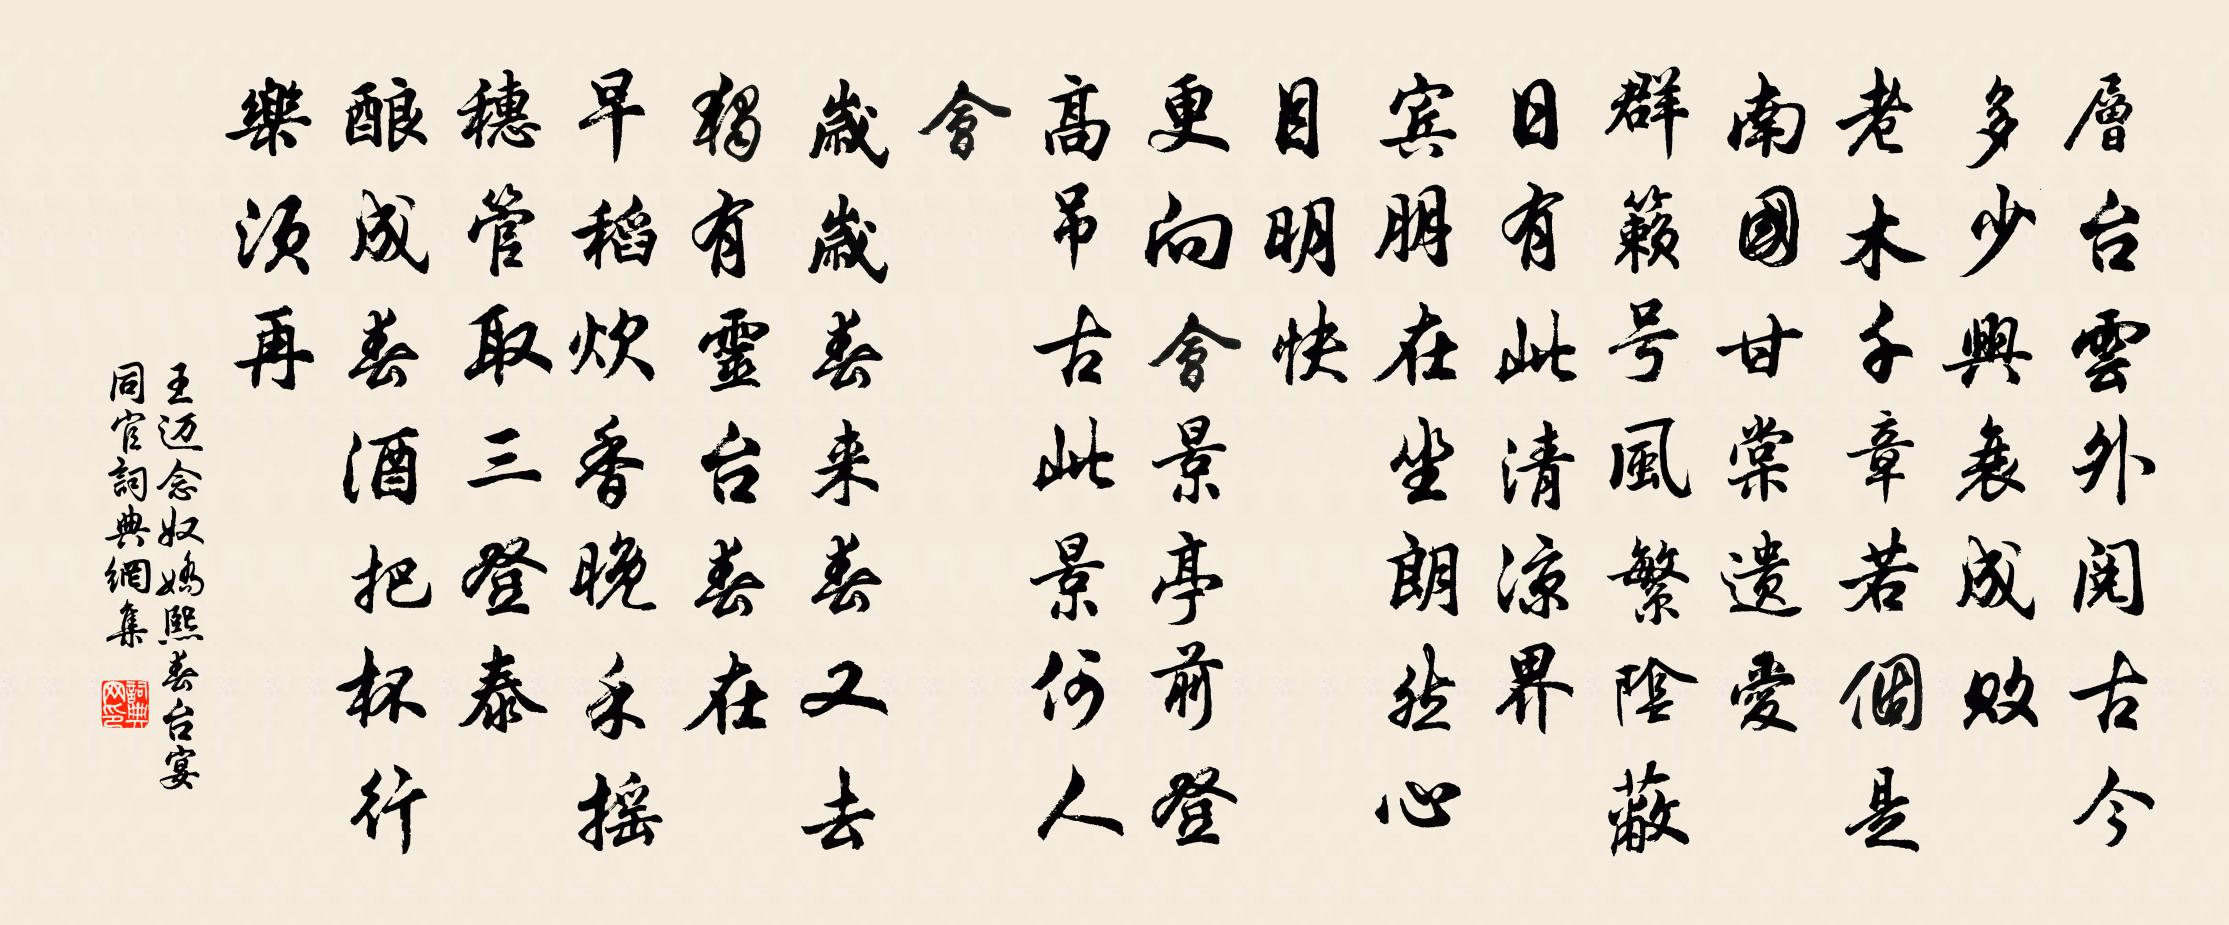 層台雲外閱古今
多少興衰成敗
老木千章若個是
南國甘棠遺愛
群籟号風繁陰蔽
日有此清涼界
宾朋在坐朗然心
目明快
更向會景亭前登
高吊古此景何人
會
歲歲春来春又去
獨有靈台春在
早稻炊香晚禾摇
穗管取三登泰
酿成春酒把杯行
樂须再
王迈念奴嬌熙春台宴
同官詞典網集
詞典网印